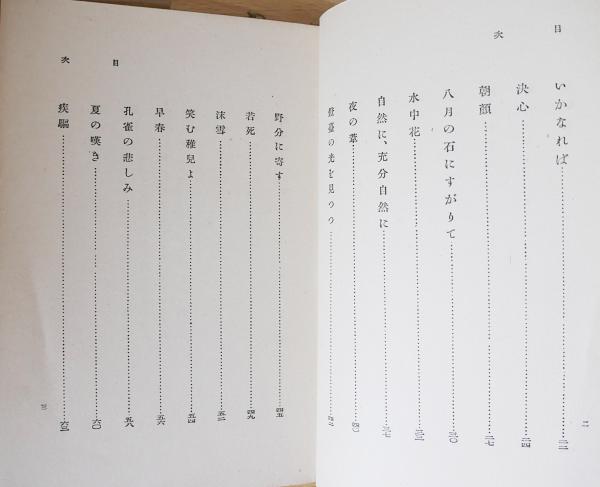 目次
いかなれば……二二
決心……二四
朝顔……二七
八月の石にすがりて……三〇
水中花……三三
自然に、充分自然に……三七
夜の葦……四〇
燈臺の光を見つつ……四二
二
目次
野分に寄す……四五
若死……四九
沫雪……五二
笑む稚兒よ……五四
早春……五六
孔雀の悲しみ……五八
夏の嘆き……六〇
疾驅……六三
三